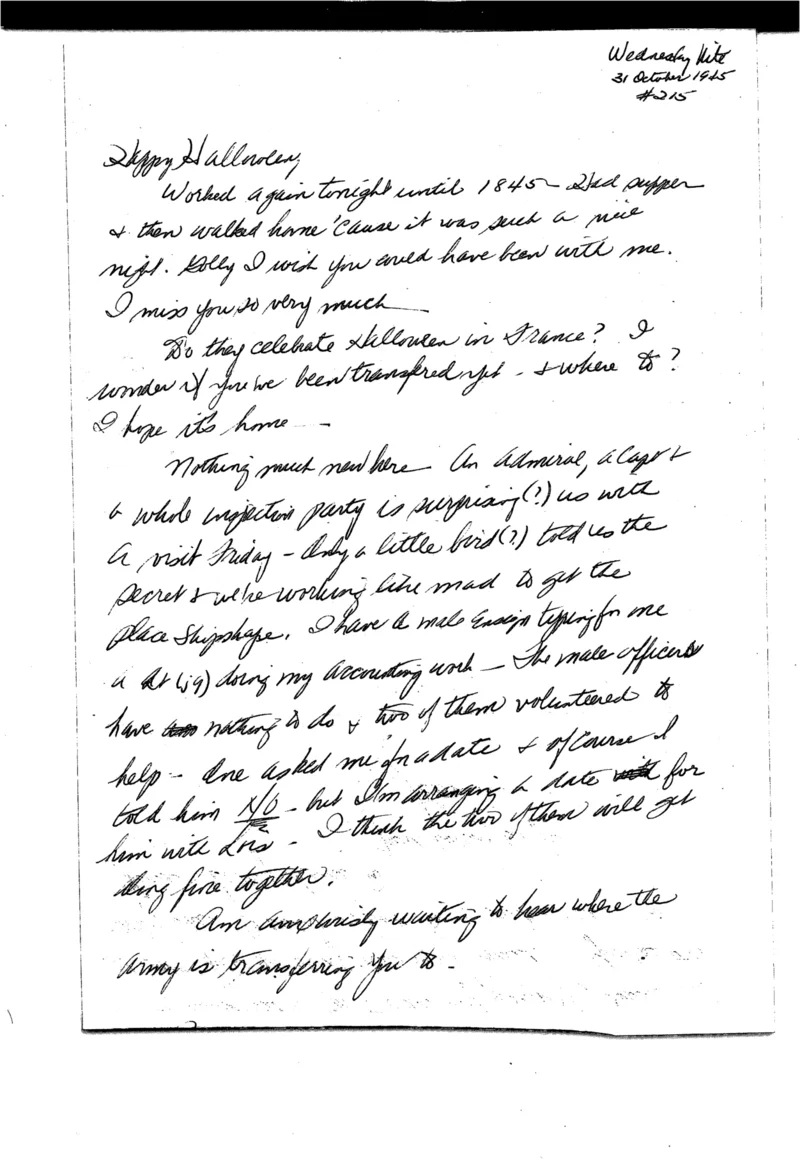 Wednesday Nite
31 October 1945
#215
Happy Halloween,
Worked again tonight until 1845 - Had supper
& then walked home 'cause it was such a nice
night. Golly I wish you could have been with me.
I miss you so very much
Do they celebrate Halloween in France? I
wonder if you've been transfered yet - & where to?
I hope it's home -
Nothing much new here - An admiral, a Capt &
a whole inspection party is surprising(?) us with
a visit Friday - Only a little bird(?) told us the
secret & we're working like mad to get the
place shipshape. I have a male Ensign typing for me
a Lt (jg) doing my accounting work - The male officers
have nothing to do & two of them volunteered to
help - One asked me for a date & of course I
told him NO - but I'm arranging a date for
him with Lois - I think the two of them will get
along fine together.
Am anxiously waiting to hear where the
Army is transferring you to -